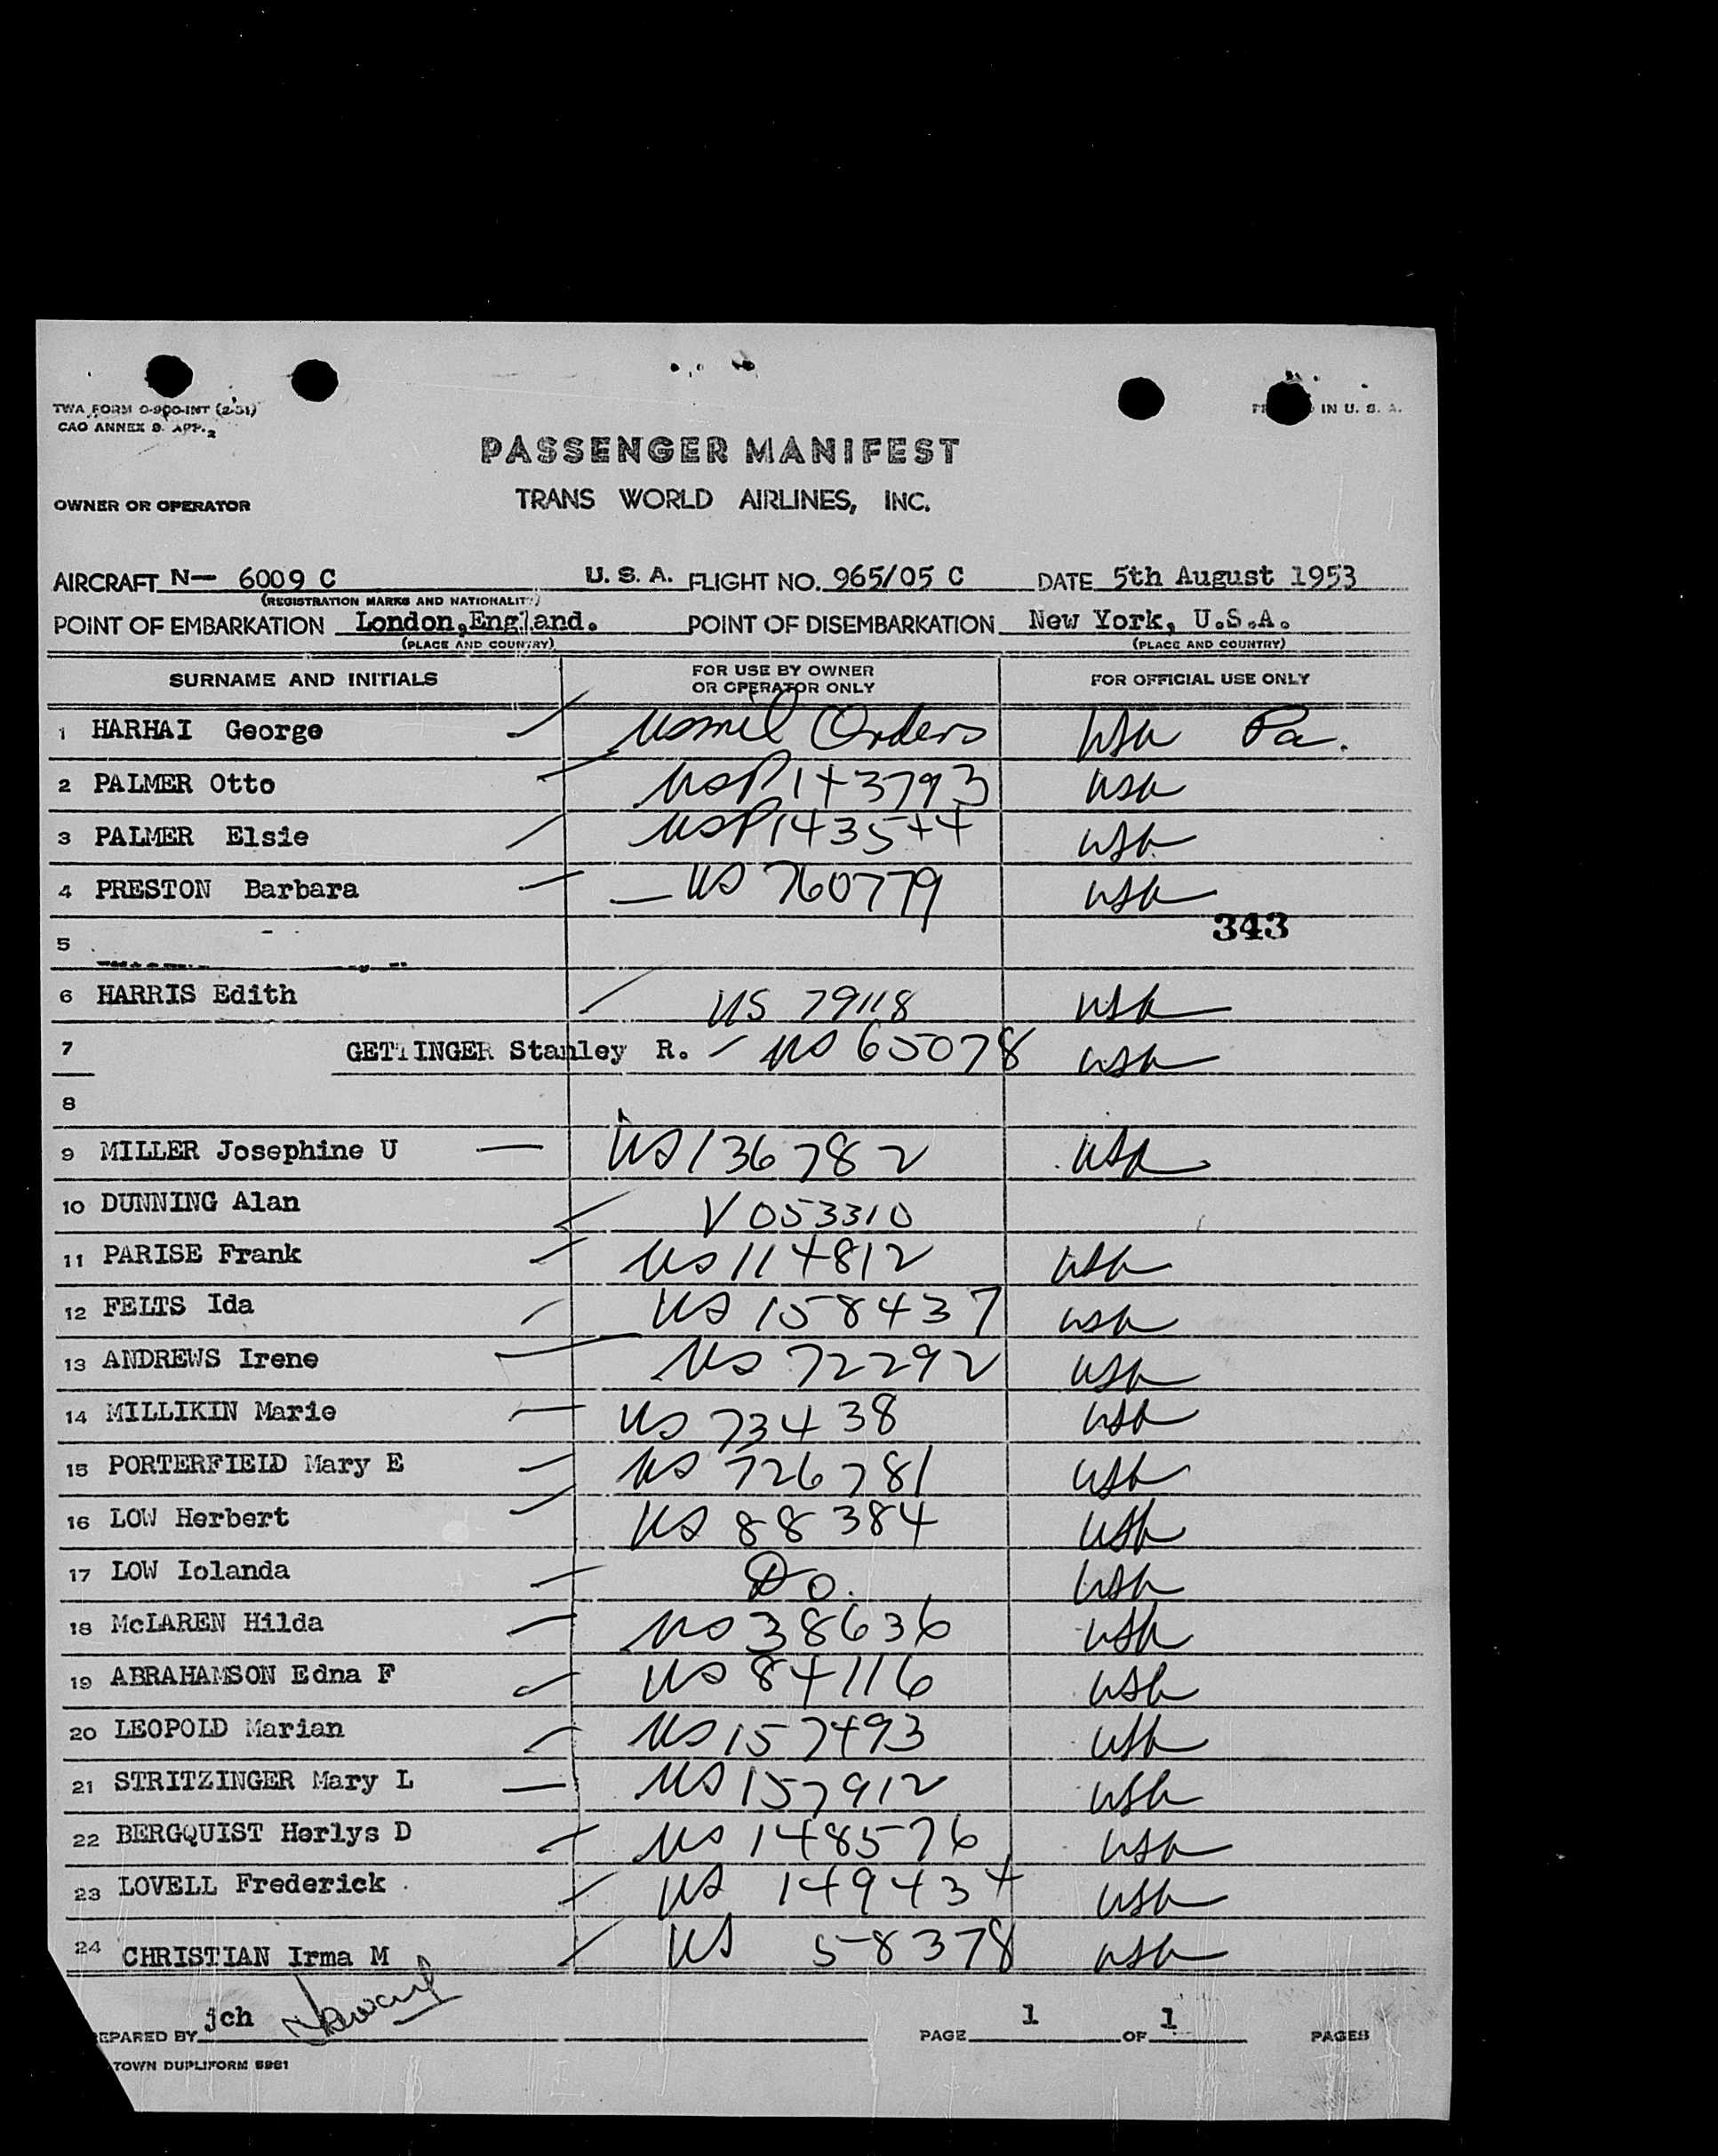 TWA FORM O-900-INT (2-51)
CAO ANNEX 9. APP. 2
IN U. S. A.
PASSENGER MANIFEST
OWNER OR OPERATOR TRANS WORLD AIRLINES, INC.
AIRCRAFT N— 6009 C U. S. A. FLIGHT NO. 965/05 C DATE 5th August 1953
(REGISTRATION MARKS AND NATIONALITY)
POINT OF EMBARKATION London,England. POINT OF DISEMBARKATION New York, U.S.A.
(PLACE AND COUNTRY) (PLACE AND COUNTRY)
SURNAME AND INITIALS FOR USE BY OWNER OR OPERATOR ONLY FOR OFFICIAL USE ONLY
1 HARHAI George — usmil Orders usa Pa.
2 PALMER Otto — USP143793 usa
3 PALMER Elsie — USP143544 usa
4 PRESTON Barbara — — US 760779 usa
343
5
6 HARRIS Edith — US 79118 usa
7 GETTINGER Stanley R. — US 65078 usa
8
9 MILLER Josephine U — US136782 usa
10 DUNNING Alan — V 053310
11 PARISE Frank — US 114812 usa
12 FELTS Ida — US 158437 usa
13 ANDREWS Irene — US 72292 usa
14 MILLIKIN Marie — US 73438 usa
15 PORTERFIELD Mary E — US 726781 usa
16 LOW Herbert — US 88384 usa
17 LOW Iolanda — Do. usa
18 McLAREN Hilda — US 38636 usa
19 ABRAHAMSON Edna F — US 84116 usa
20 LEOPOLD Marian — US 157493 usa
21 STRITZINGER Mary L — US 157912 usa
22 BERGQUIST Herlys D — US 148576 usa
23 LOVELL Frederick — US 149434 usa
24 CHRISTIAN Irma M — US 58378 usa
EPARED BY jch PAGE 1 OF 1 PAGES
TOWN DUPLIFORM 5961